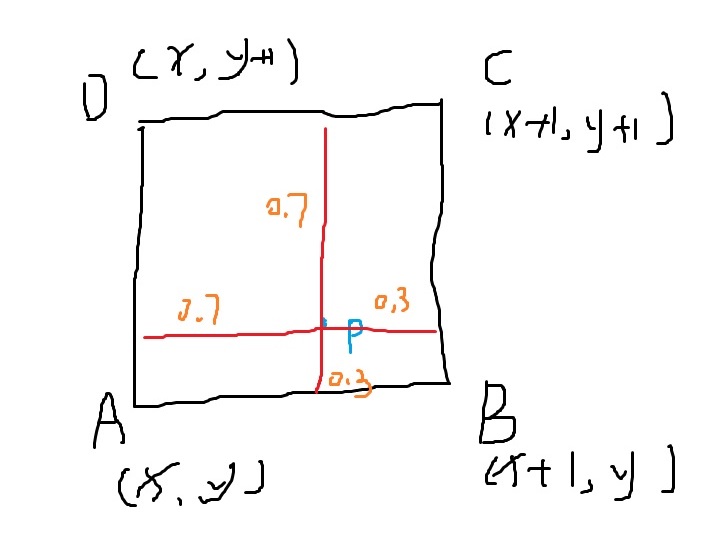 D (x, y+1) C
(x+1, y+1)
0.7
0.7 0.3
P
0.3
A B
(x, y) (x+1, y)